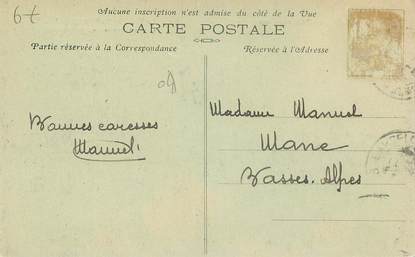 6€
Aucune inscription n'est admise du côté de la Vue
CARTE POSTALE
Partie réservée à la Correspondance
Réservée à l'Adresse
Bonnes caresses
Manuel
Madame Manuel
Mane
Basses-Alpes